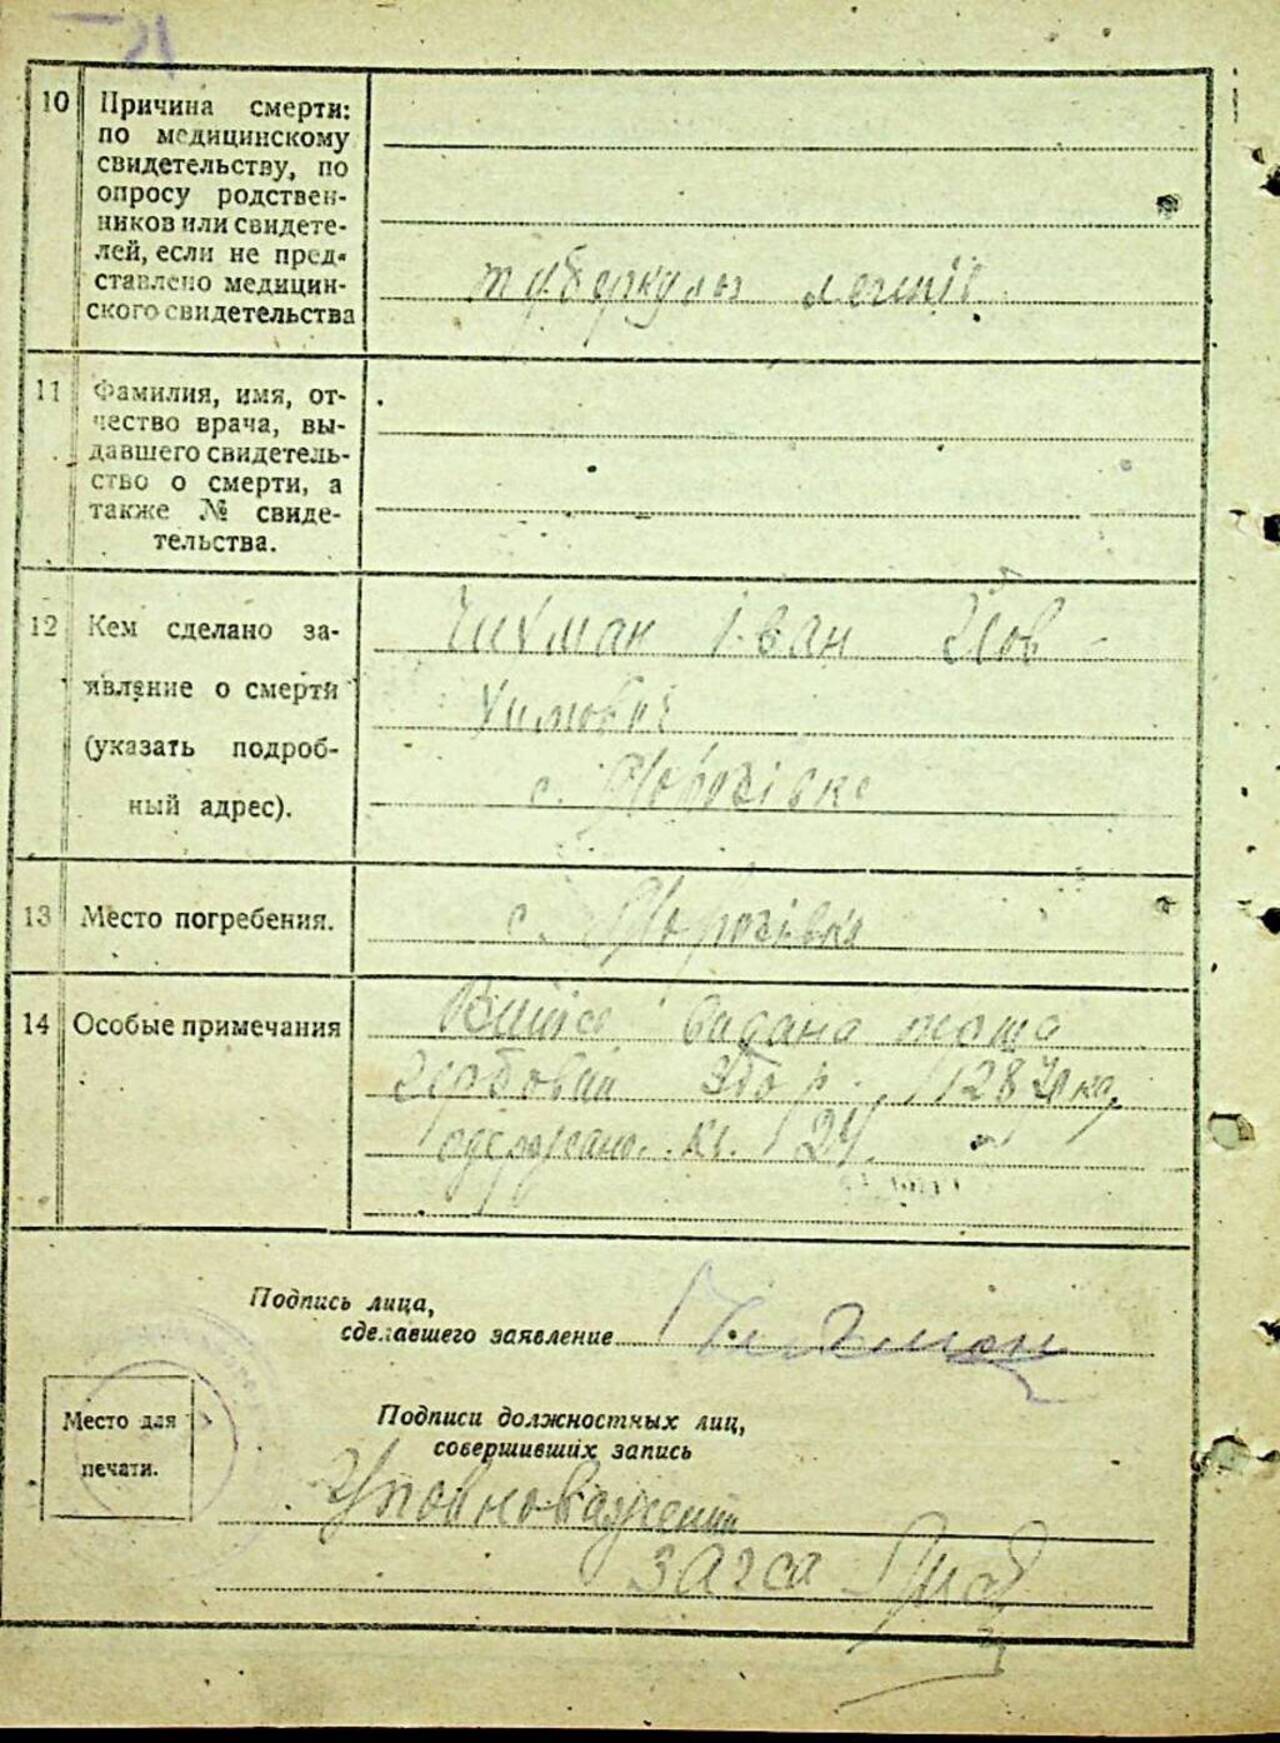 10 Причина смерти:
по медицинскому
свидетельству, по
опросу родствен-
ников или свидете-
лей, если не пред-
ставлено медицин-
ского свидетельства
туберкульоз легенів
11 Фамилия, имя, от-
чество врача, вы-
давшего свидетель-
ство о смерти, а
также № свиде-
тельства.
12 Кем сделано за-
явление о смерти
(указать подроб-
ный адрес).
Чихман Іван Йов-
химович
с.
13 Место погребения.
с.
14 Особые примечания
видана
гербовий збор
одержано. кв. 24.
Подпись лица,
сделавшего заявление Чихман
Место для
печати.
Подписи должностных лиц,
совершивших запись
Уповноважений
загса